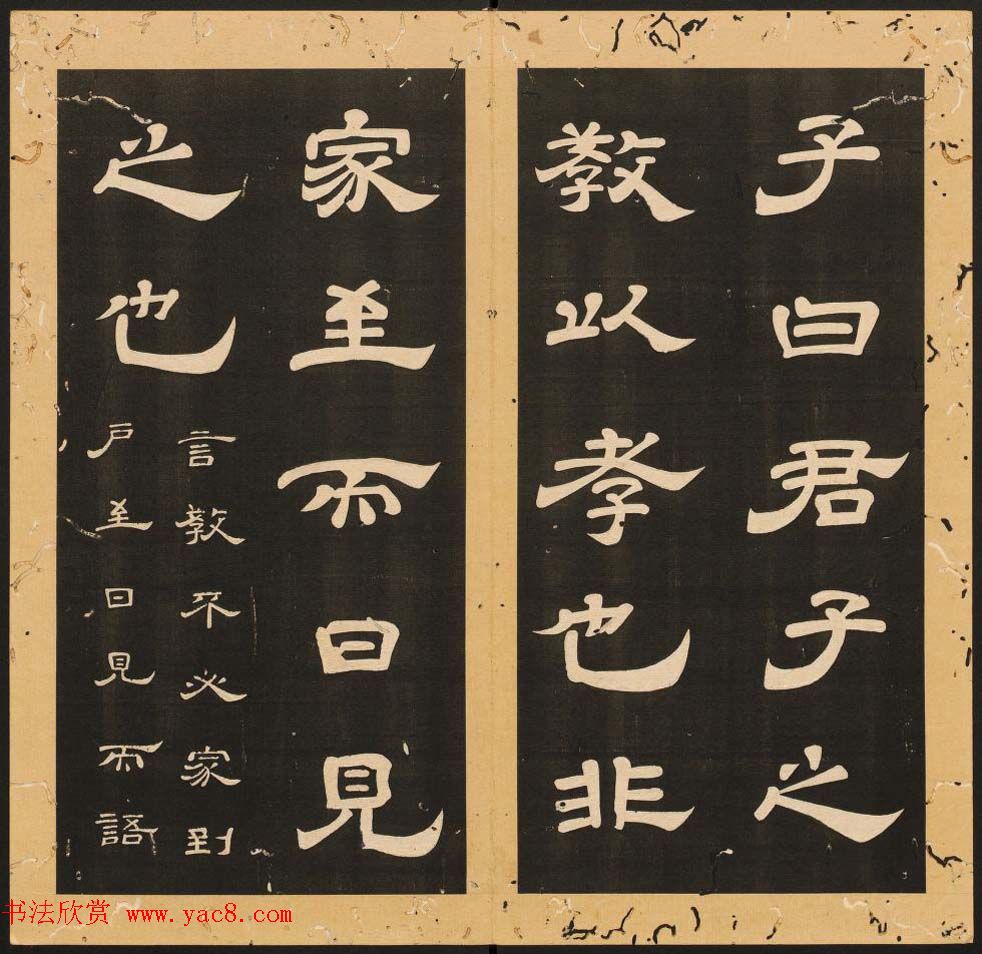 子曰君子之
教以孝也非
家至而日見
之也
言教不必家到
戶至日見而語
书法欣赏 www.yac8.com